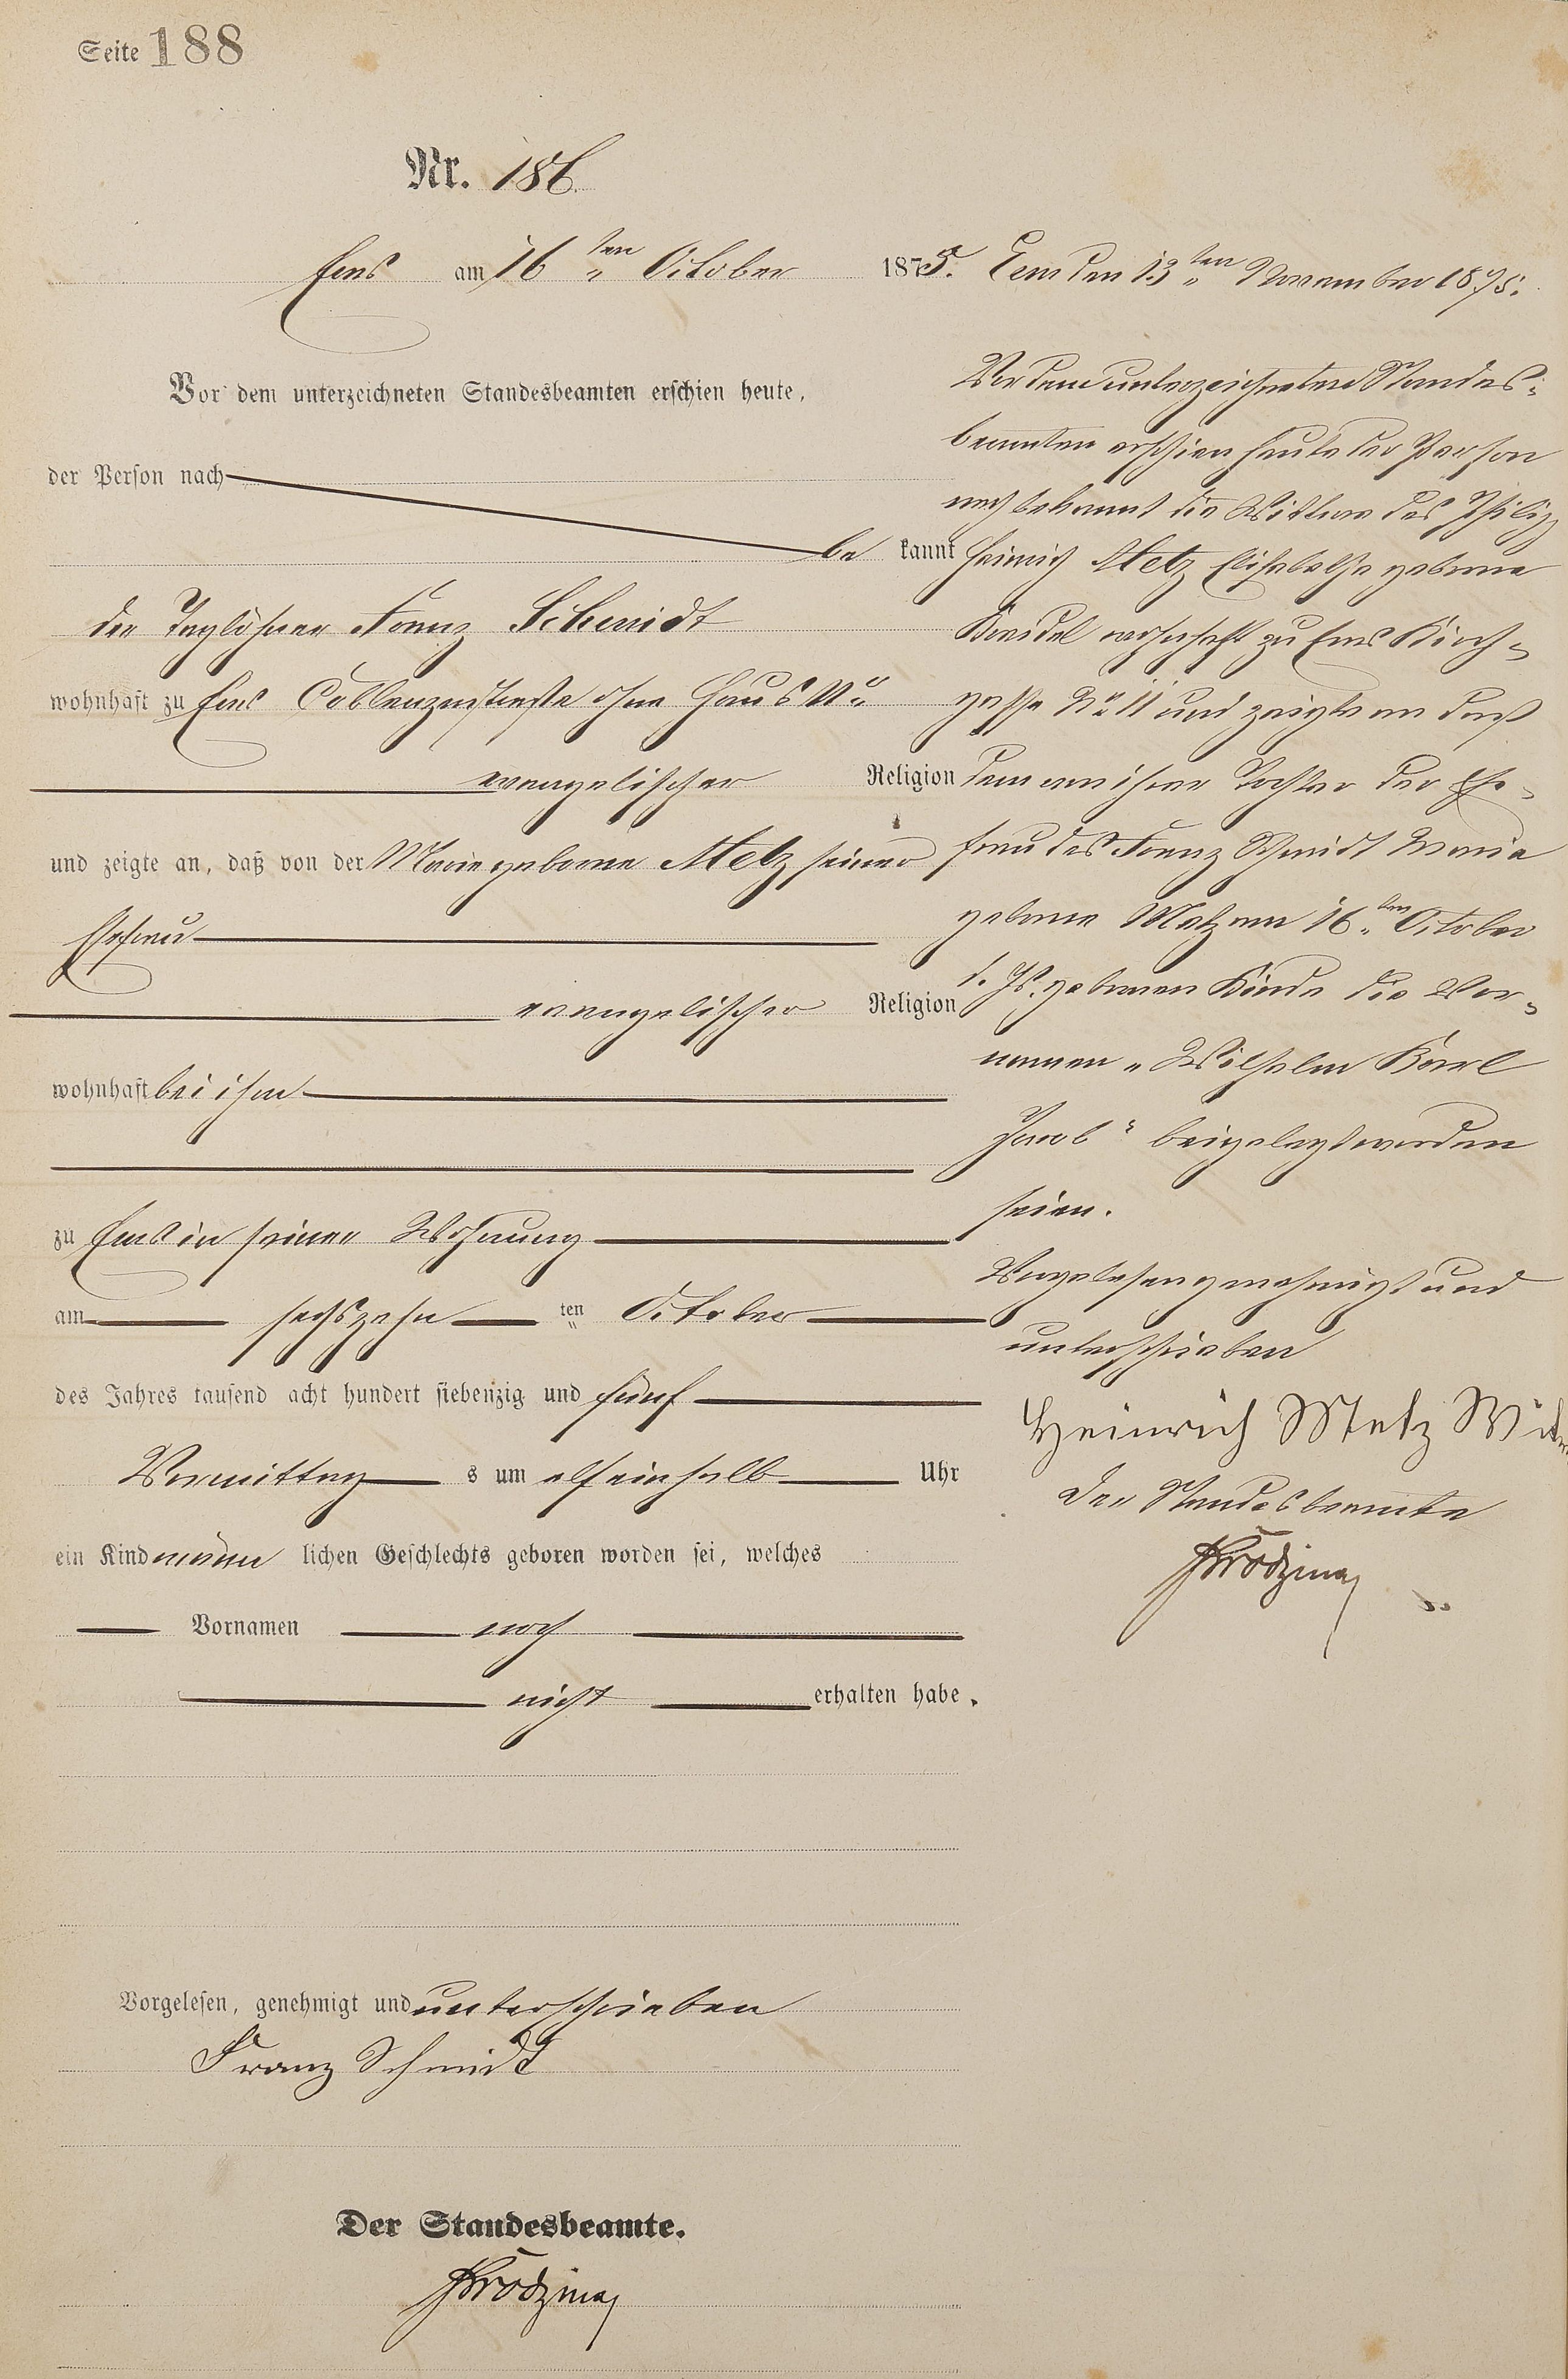 Seite 188
Nr. 186.
Ems am 16 ten October 1875.
Vor dem unterzeichneten Standesbeamten erschien heute,
der Person nach
be kannt
der Taglöhner Franz Schmidt
wohnhaft zu Ems Coblenzerstraße ohne Haus No
evangelischer Religion
und zeigte an, daß von der Marie geborne Metz seiner
Ehefrau
evangelischer Religion
wohnhaft bei ihm
zu Ems in seiner Wohnung
am sechszehn ten October
des Jahres tausend acht hundert siebenzig und fünf
Vormittag s um elfeinhalb Uhr
ein Kind männ lichen Geschlechts geboren worden sei, welches
Vornamen noch
nicht erhalten habe.
Vorgelesen, genehmigt und unterschrieben
Franz Schmidt
Der Standesbeamte.
Ems den 13ten November 1875.
Vor dem unterzeichneten Standes-
beamten erschien heute der Person
nach bekannt die Wittwe des Philipp
Heinrich Metz Elisabethe geborne
wohnhaft zu Ems Kirch-
gasse No 11 und zeigte an daß
dem von ihrer Tochter der Ehe-
frau des Franz Schmidt Maria
geborne Metz am 16ten October
d. Js. gebornen Kinde die Vor-
namen „Wilhelm Karl
Jacob“ beigelegt worden
seien.
Vorgelesen genehmigt und
unterschrieben
Heinrich Metz
Der Standesbeamte